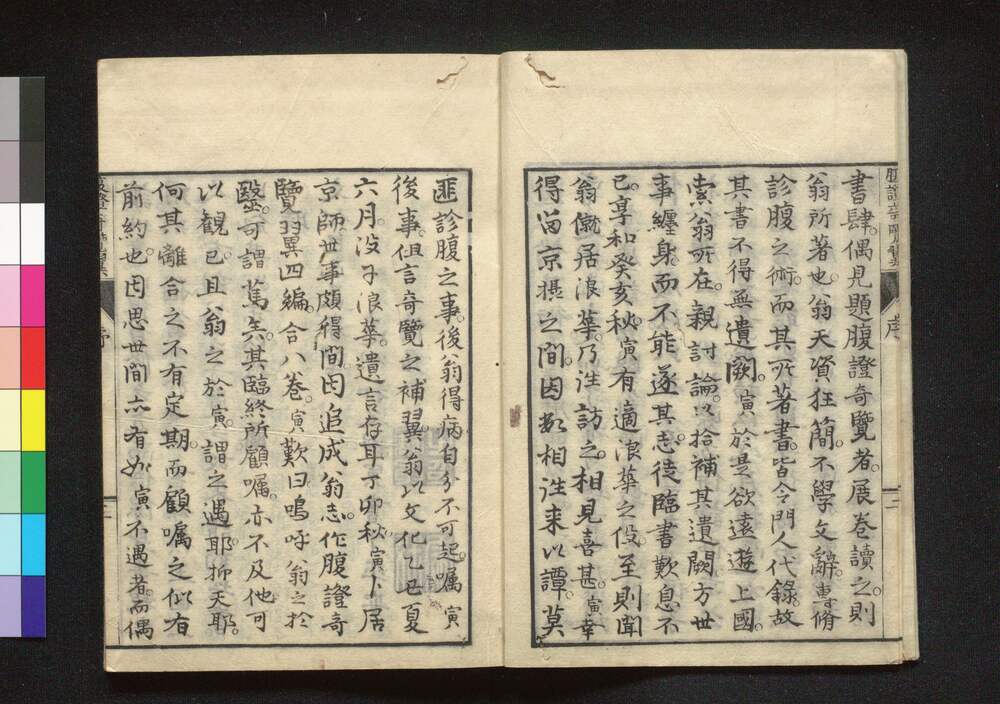 書肆。偶見題腹證奇覽者。展卷讀之。則
翁所著也。翁天資狂簡。不學文辭。專脩
診腹之術。而其所著書。皆令門人代錄。故
其書不得無遺闕。寅於是欲遠遊上國。
索翁所在。親討論。以拾補其遺闕。方世
事纏身。而不能遂其志。徒臨書歎息。不
已。享和癸亥秋。寅有適浪華之役。至則聞
翁僦居浪華。乃往訪之。相見喜甚。寅幸
得留京摂之間。因數相往来。以譚。莫
匪診腹之事。後翁得病。自分不可起。囑寅
後事。但言奇覽之補翼。翁以文化乙丑夏
六月。没于浪華。遺言存耳。丁卯秋。寅卜居
京師。世事頗得間。因追成翁志。作腹證奇
覽翼四編。合八卷。寅歎曰。嗚呼。翁之於
毉。可謂篤矣。其臨終所顧囑。亦不及他。可
以観已。且翁之於寅。謂之遇耶。抑天耶。
何其離合之不有定期。而顧囑之似有
前約也。因思世間亦有如寅不遇者。而偶